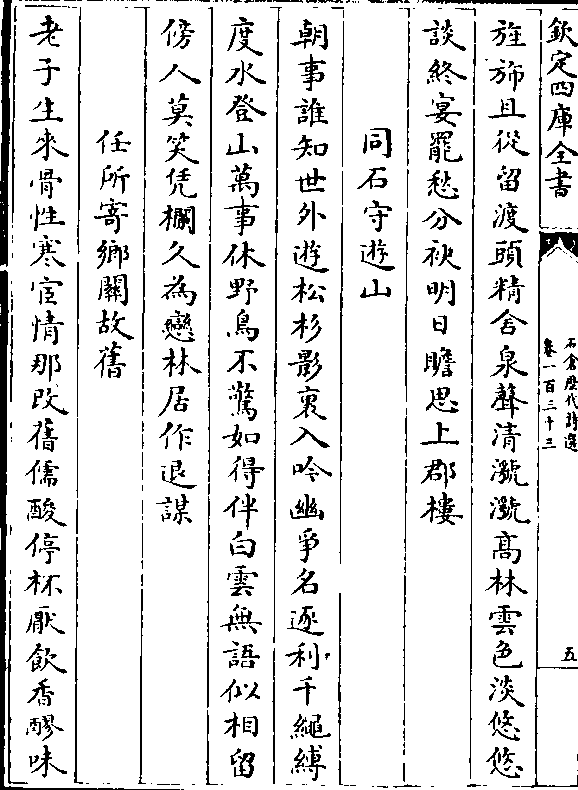 欽定四庫全書
石倉歷代詩選
卷一百三十三
五
旌斾且從留渡頭精舍泉聲清㶁㶁髙林雲色淡悠悠
談終宴罷愁分袂明日瞻思上郡樓
同石守遊山
朝事誰知世外遊松杉影裏入吟幽爭名逐利千繩縛
度水登山萬事休野鳥不驚如得伴白雲無語似相留
傍人莫笑凭欄久為戀林居作退謀
任所寄鄉關故舊
老子生來骨性寒宦情那改舊儒酸停杯厭飲香醪味